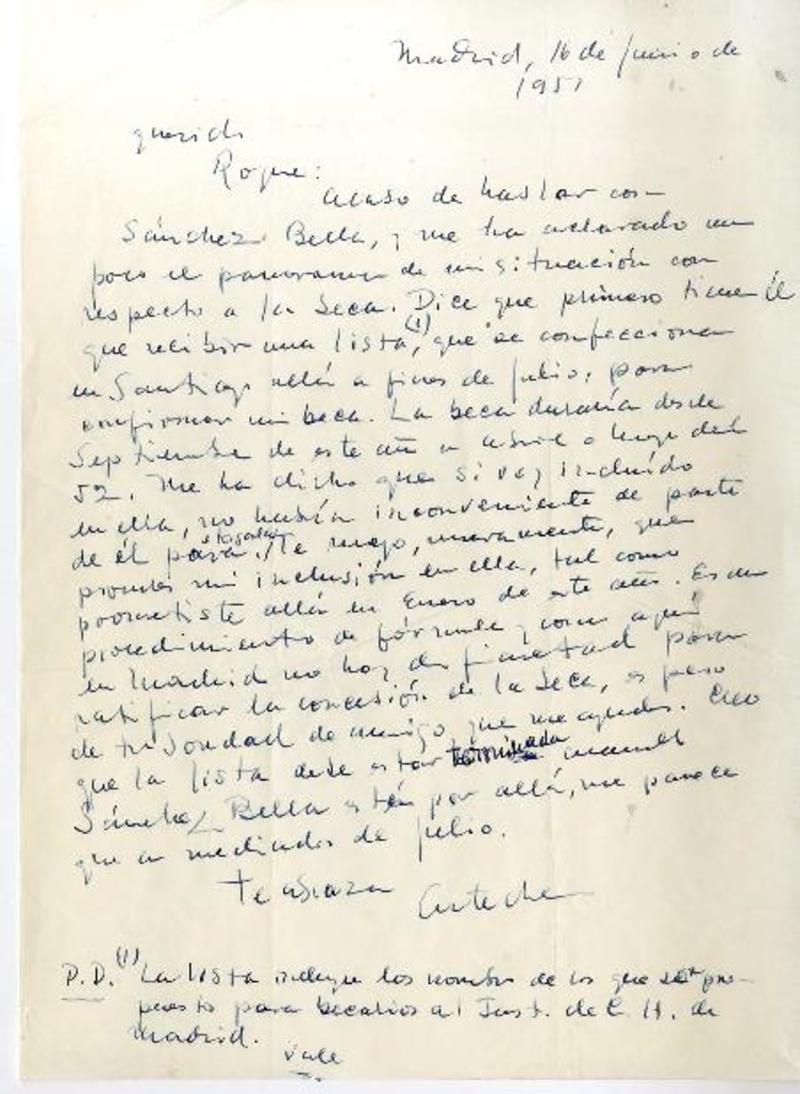 Madrid, 16 de junio de
1951
querido
Roque:
Acabo de hablar con
Sánchez Bella, y me ha aclarado un
poco el panorama de mi situación con
respecto a la beca. Dice que primero tiene él
que recibir una lista (1), que se confecciona
en Santiago allá a fines de julio, para
confirmar mi beca. La beca duraría desde
Septiembre de este año a abril o mayo del
52. Me ha dicho que si voy incluído
en ella, no habría inconveniente de parte
de él para otorgarla. Te ruego, nuevamente, que
mi inclusión en ella, tal como
prometiste allá en Enero de este año. Es un
procedimiento de fórmula, y como aquí
en Madrid no hay dificultad para
ratificar la concesión de la beca, espero
de tu bondad de amigo, que me ayudes. Creo
que la lista debe estar terminada cuando
Sánchez Bella esté por allá, me parece
que a mediados de julio.
Te abraza
P.D. (1) La lista incluye los nombres de los que pro-
puesto para becarios al Inst. de C. H. de
Madrid.
Vale